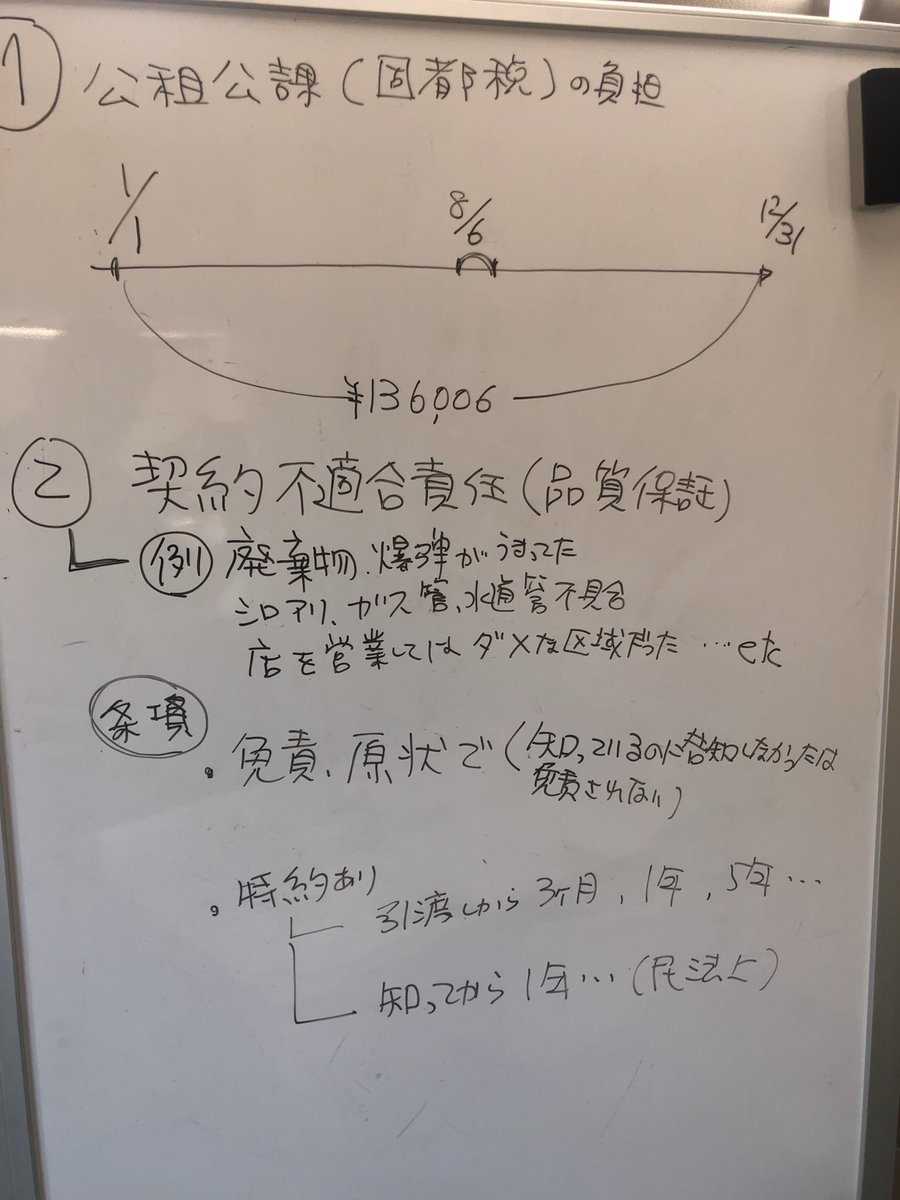 ① 公租公課(固都税)の負担
1/1 8/6 12/31
¥136,006
② 契約不適合責任(品質保証)
例 廃棄物、爆弾がうまってた
シロアリ、ガス管、水道管不具合
店を営業してはダメな区域だった …etc
条項
・免責、原状で(知っているのに告知しなかったは
免責されない)
・特約あり
引渡しから3ヶ月，1年，5年…
知ってから1年…(民法上)